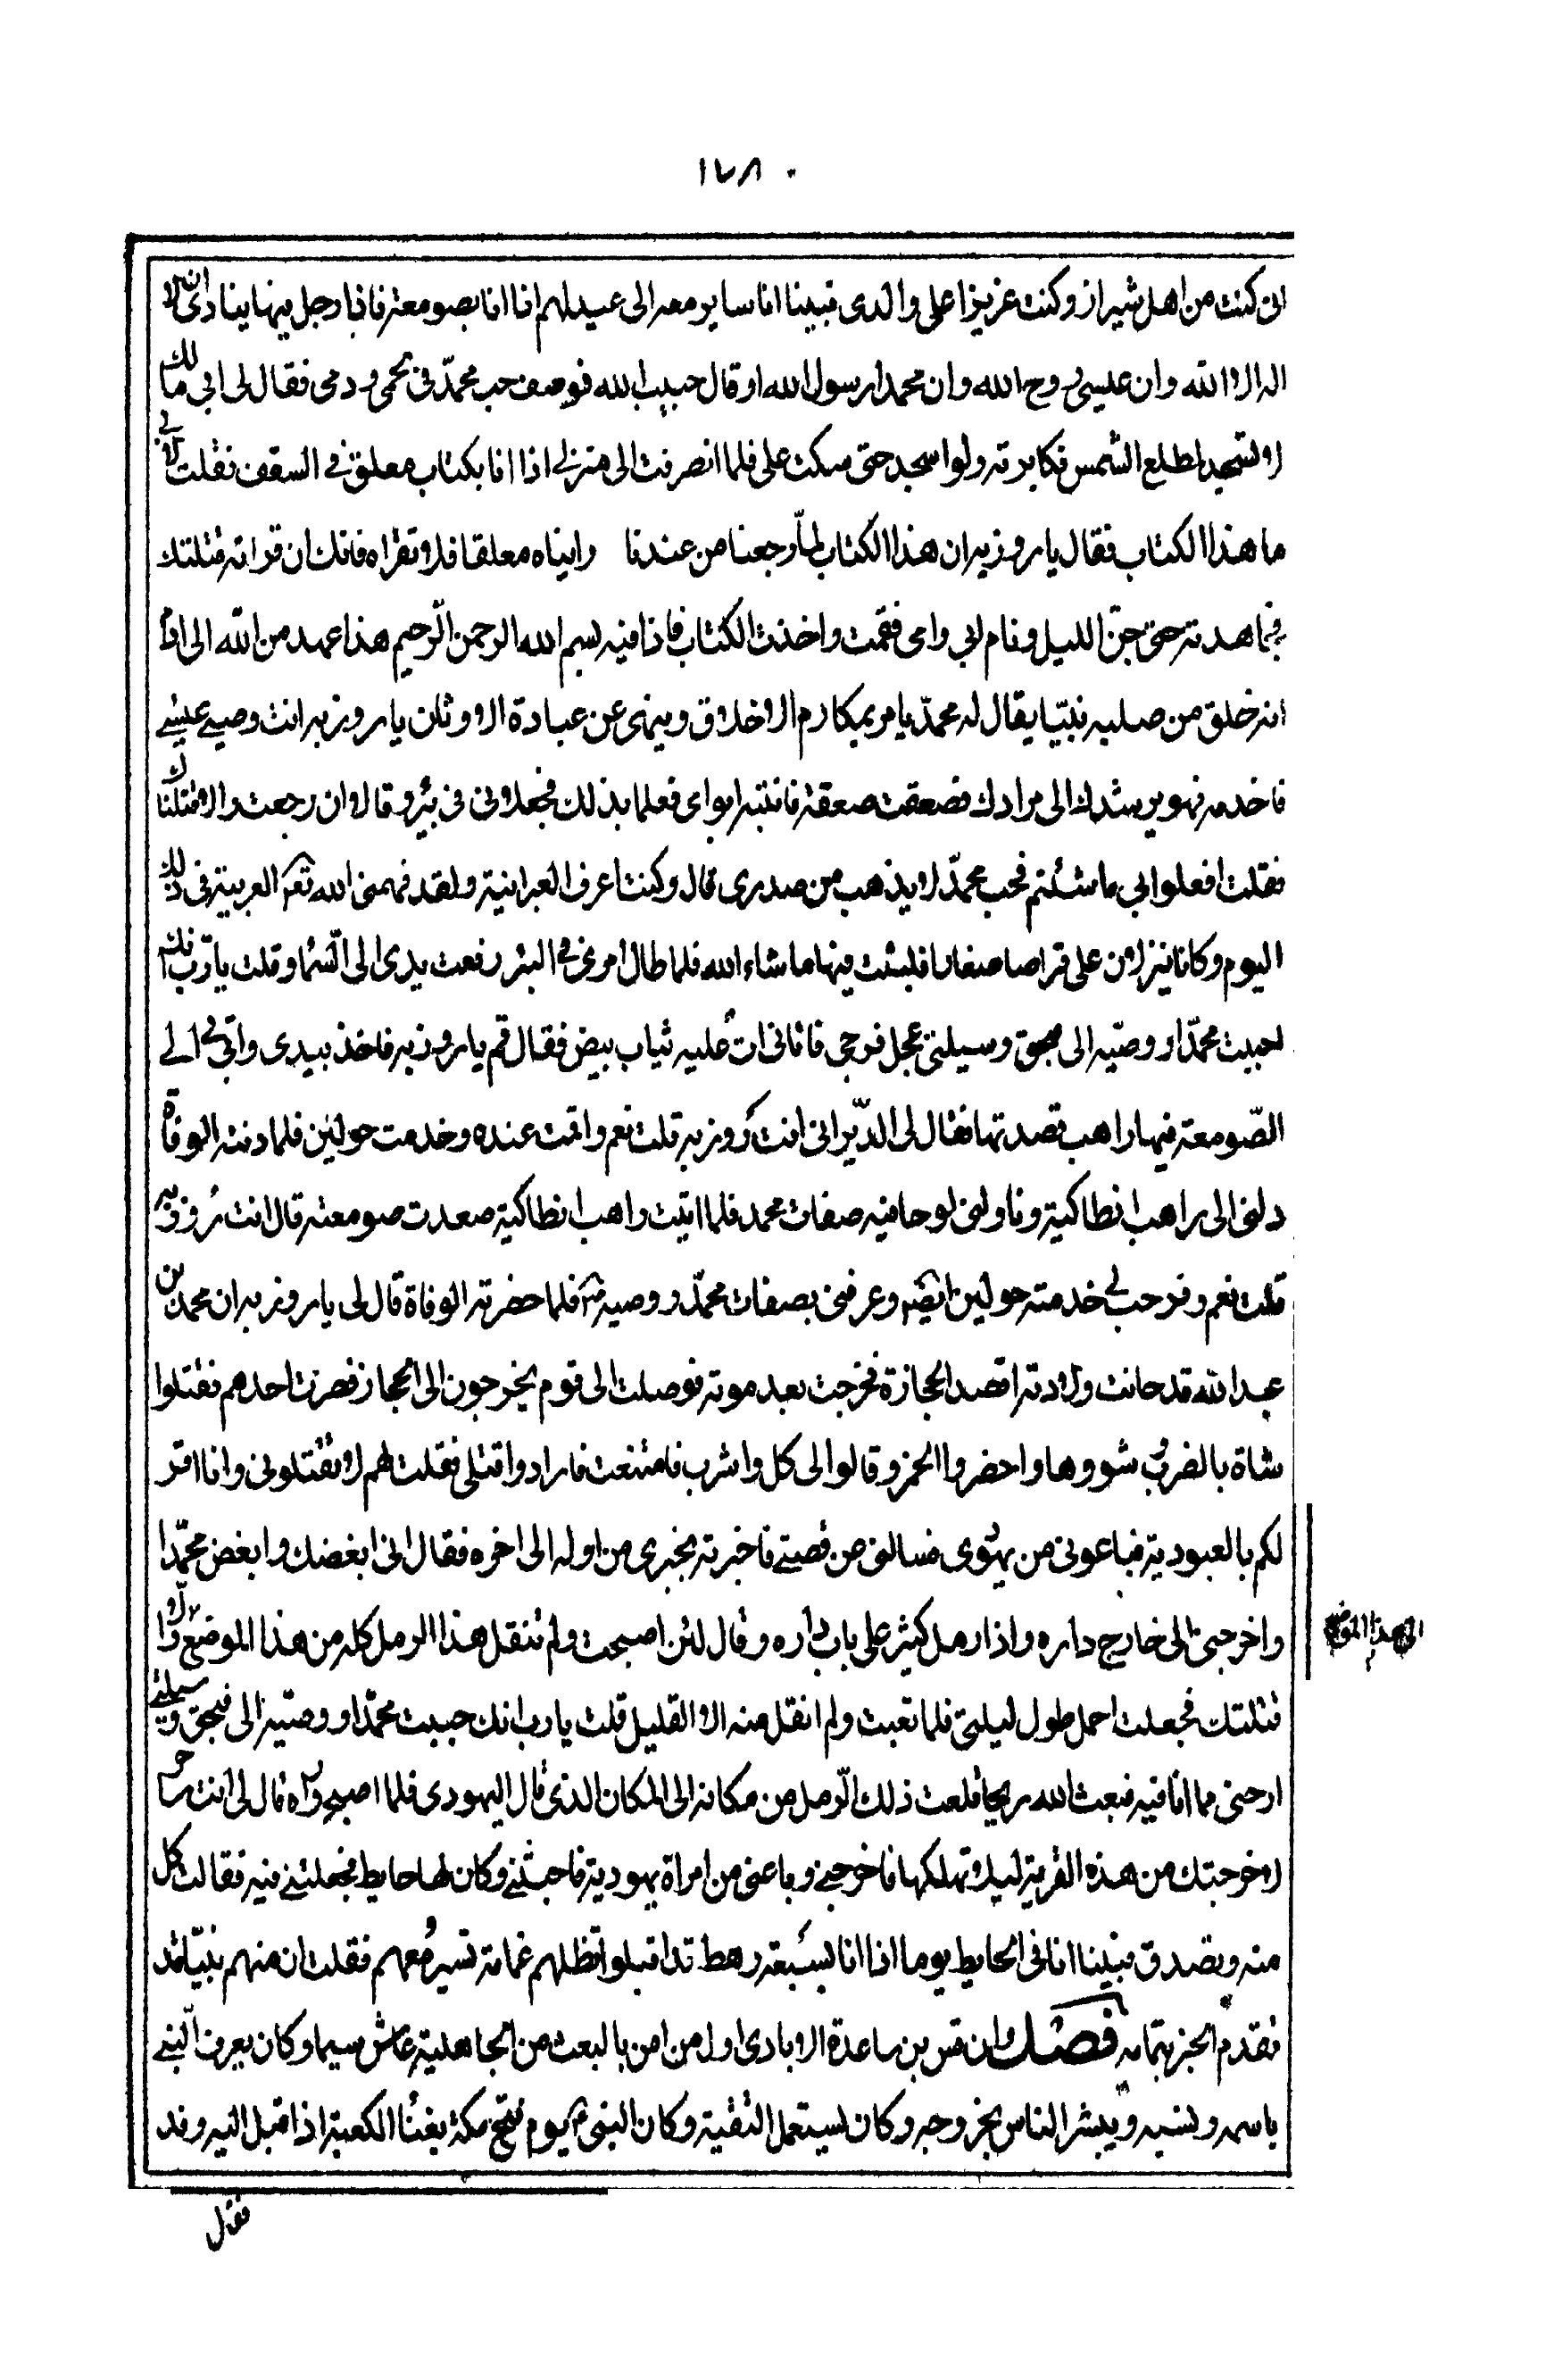 ١٧٨
انى كنت من اهل شيراز وكنت عزيزا على والدى فبينا انا ساير معه الى عيد لهم اذا انا بصومعة فاذا رجل فيها ينادى ان لا
اله الا الله وان عيسى روح الله وان محمدا رسول الله او قال حبيب الله فوصف حب محمّد فى لحمى ودمى فقال لى ابى مالك
لا تسجد لمطلع الشمس فكابرته ولو اسجد حتى سكت على فلما انصرفت الى منزلى اذا انا بكتاب معلق فى السقف فقلت لابى
ما هذا الكتاب فقال يا روزبه ان هذا الكتاب لمّا رجعنا من عندنا رايناه معلقا فلا تقراه فانك ان قراته قتلتك
فجاهدته حتى جنّ الليل ونام ابى وامى فقمت واخذت الكتاب فاذا فيه بسم الله الرحمن الرّحيم هذا عهد من الله الى ادم
انه خلق من صلبه نبيّا يقال له محمّد يامر بمكارم الاخلاق وينهى عن عبادة الاوثان يا روزبه انت وصى عيسى
فاخدمه فهو يرشدك الى مرادك فصعقت صعقة فانتبه ابواى فعلما بذلك فجعلونى فى بئر وقالا ان رجعت والا قتلناك
فقلت افعلوا بى ما شئتم فحب محمّد لا يذهب من صدرى قال وكنت اعرف العبرانية ولقد فهمنى الله تعم العربية فى ذلك
اليوم وكانا ينزلان على قراصا صغارا فلبثت فيها ما شاء الله فلما طال امرى فى البئر رفعت يدى الى السّماء وقلت يا ربّ انك
احببت محمّدا ووصيّه الى فبحق وسيلتى عجل فرجى فاتانى ات عليه ثياب بيض فقال قم يا روزبه فاخذ بيدى واتى بى الى
الصّومعة فيها راهب قصدتها فقال لى الدّيرانى انت روزبه قلت نعم واقمت عنده وخدمت حولين فلما دنته الوفاة
دلنى الى راهب انطاكية وناولنى لوحا فيه صفات محمد فلما اتيت راهب انطاكية صعدت صومعته قال انت روزبه
قلت نعم وفرحب بى خدمته حولين ايضا وعرفنى بصفات محمّد ووصيه فلما حضرته الوفاة قال لى يا روزبه ان محمد بن
عبد الله قد حانت ولادته اقصد الحجازة فخرجت بعد موته فوصلت الى قوم يخرجون الى الحجاز فصرت احدهم فقتلوا
شاة بالضرب شووها واحضروا الخمر وقالوا لى كل واشرب فامتنعت فارادوا قتلى فقلت لهم لا تقتلونى وانا اقر
لكم بالعبودية فباعونى من يهودى فسالنى من قصتى فاخبرته بخبرى من اوله الى اخره فقال انى ابغضك وابغض محمّدا
واخرجنى الى خارج داره واذا رمل كثير على باب داره وقال لئن اصبحت ولم تنقل هذا الرمل كله من هذا الموضع والا
الى هذا الموضع
قتلتك فجعلت احمل طول ليلتى فلما تعبت ولم انقل منه الا القليل قلت يا رب انك حببت محمّدا ووصيّه الى فبحق وسيلتى
ارحنى مما انا فيه فبعث الله ريحا قلعت ذلك الرّمل من مكانه الى المكان الذى قال اليهودى فلما اصبح وراه قال لى انت ساحر
لاخرجنك من هذه القرية ليلا تهلكها فاخرجنى وباعنى من امراة يهودية فاحبتنى وكان لها حايط فجعلتنى فيه فقالت كل
منه وتصدق فبينا انا فى الحايط يوما اذا انا بسبعة رهط قد اقبلوا تظلهم غمامة تسير معهم فقلت ان منهم نبيّا قد
فقدم الخبر بتمامه فصل وان قس بن ساعدة الايادى اول من امن بالبعث من الجاهلية عاش سيما وكان يعرف النّبى
باسمه ونسبه ويبشر الناس بخروجه وكان يستعمل التقية وكان النبى ص يوم فتح مكة بفناء الكعبة اذا قبل اليه وفد
فقال